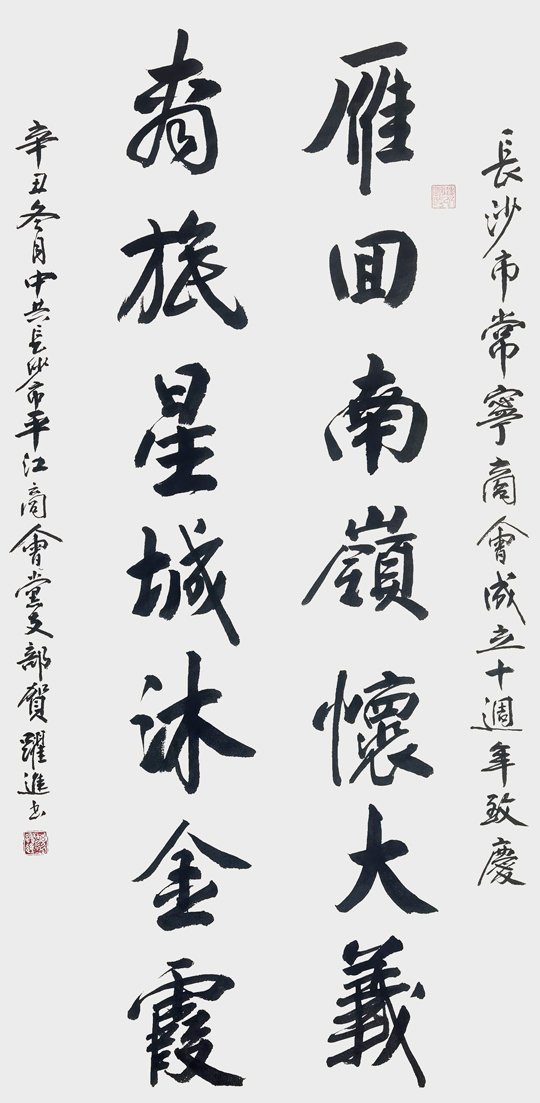 長沙市常寧商會成立十週年致慶
雁回南嶺懷大義
商旅星城沐金霞
辛丑冬月中共長沙市平江商會党支部賀躍進书